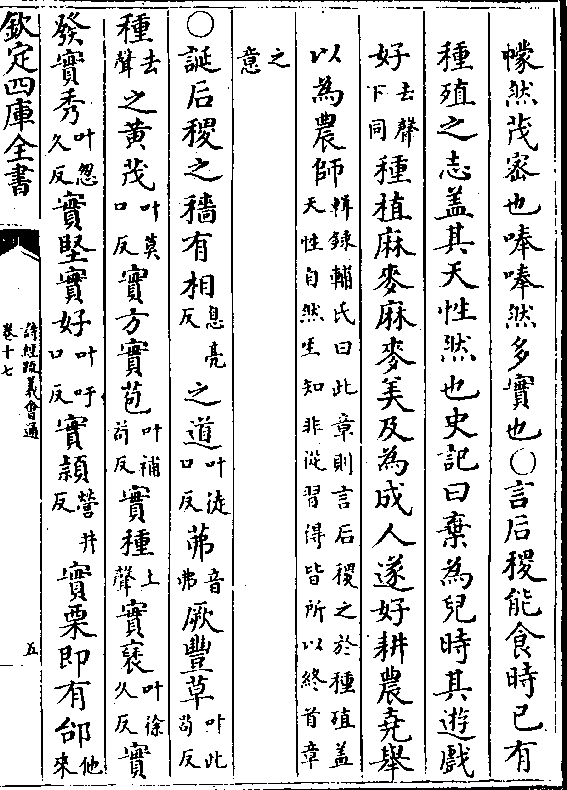 幪然茂宻也唪唪然多實也○言后稷能食時已有
種殖之志盖其天性然也史記曰棄為兒時其遊戲
好去聲下同種植麻麥麻麥美及為成人遂好耕農堯舉
以為農師輯錄輔氏曰此章則言后稷之於種殖盖天性自然生知非從習得皆所以終首章
之意
○誕后稷之穡有相息亮反之道叶徒口反茀音弗厥豐草叶此苟反
種去聲之黄茂叶莫口反實方實苞叶補苟反實種上聲實褎叶徐久反實
發實秀叶怱久反實堅實好叶吁口反實穎營井反實栗即有邰他來
欽定四庫全書
詩經疏義會通
卷十七
五